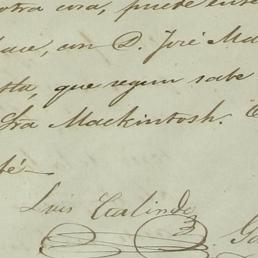 otra cosa, puede
con D. José Ma
que segun sabe
Sra Mackintosh.
Luis Galindo